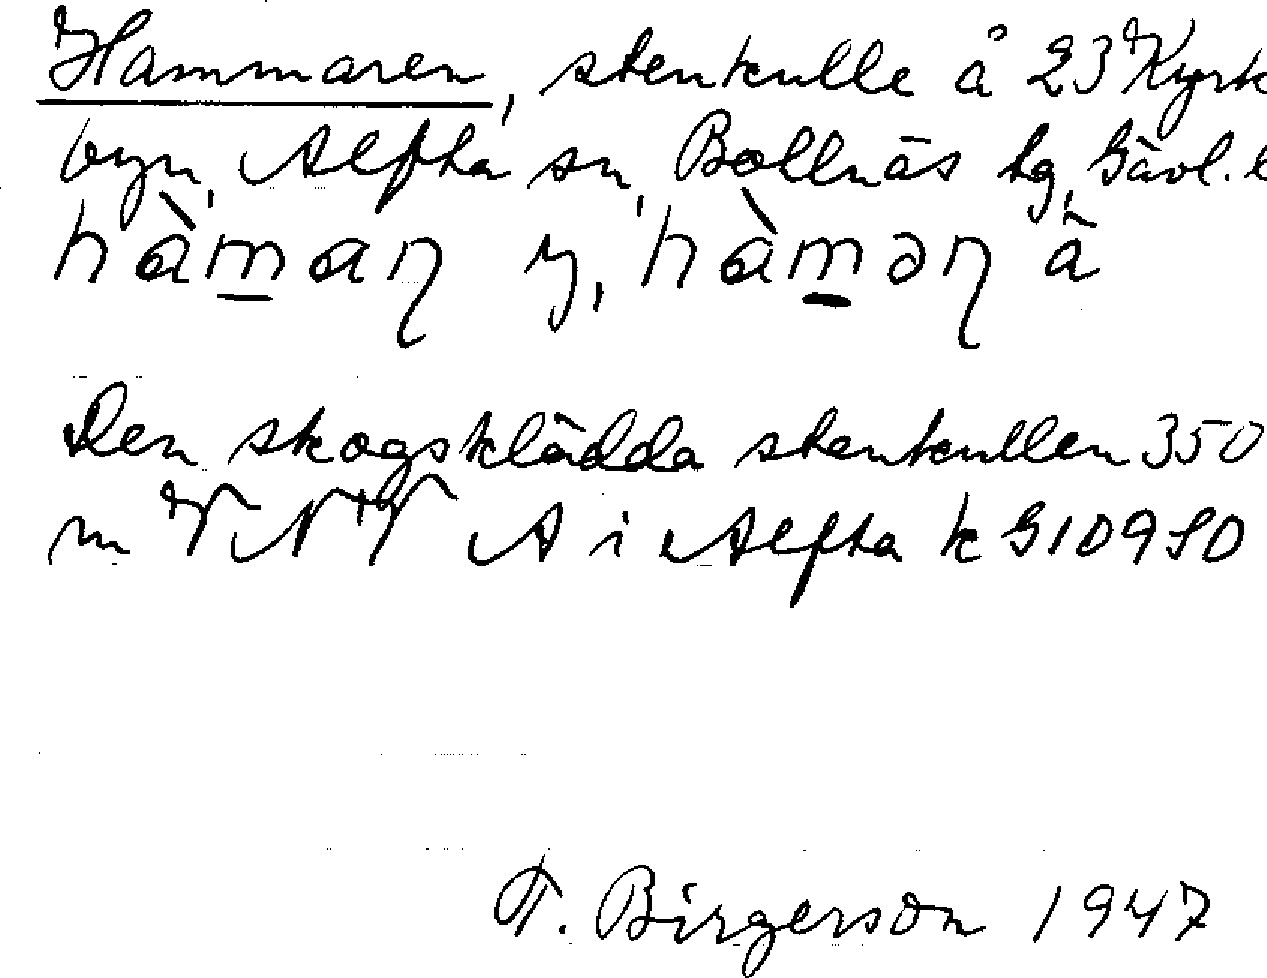 Hammaren, stenkulle å 23 Kyrk
byn, Alfta sn, Bollnäs tg, Gävl. l
hàm̲aƞ y, hàm̲əƞ ä
Den skogsklädda stenkullen 350
m VNV A i Alfta k G10950
T. Birgerson 1947